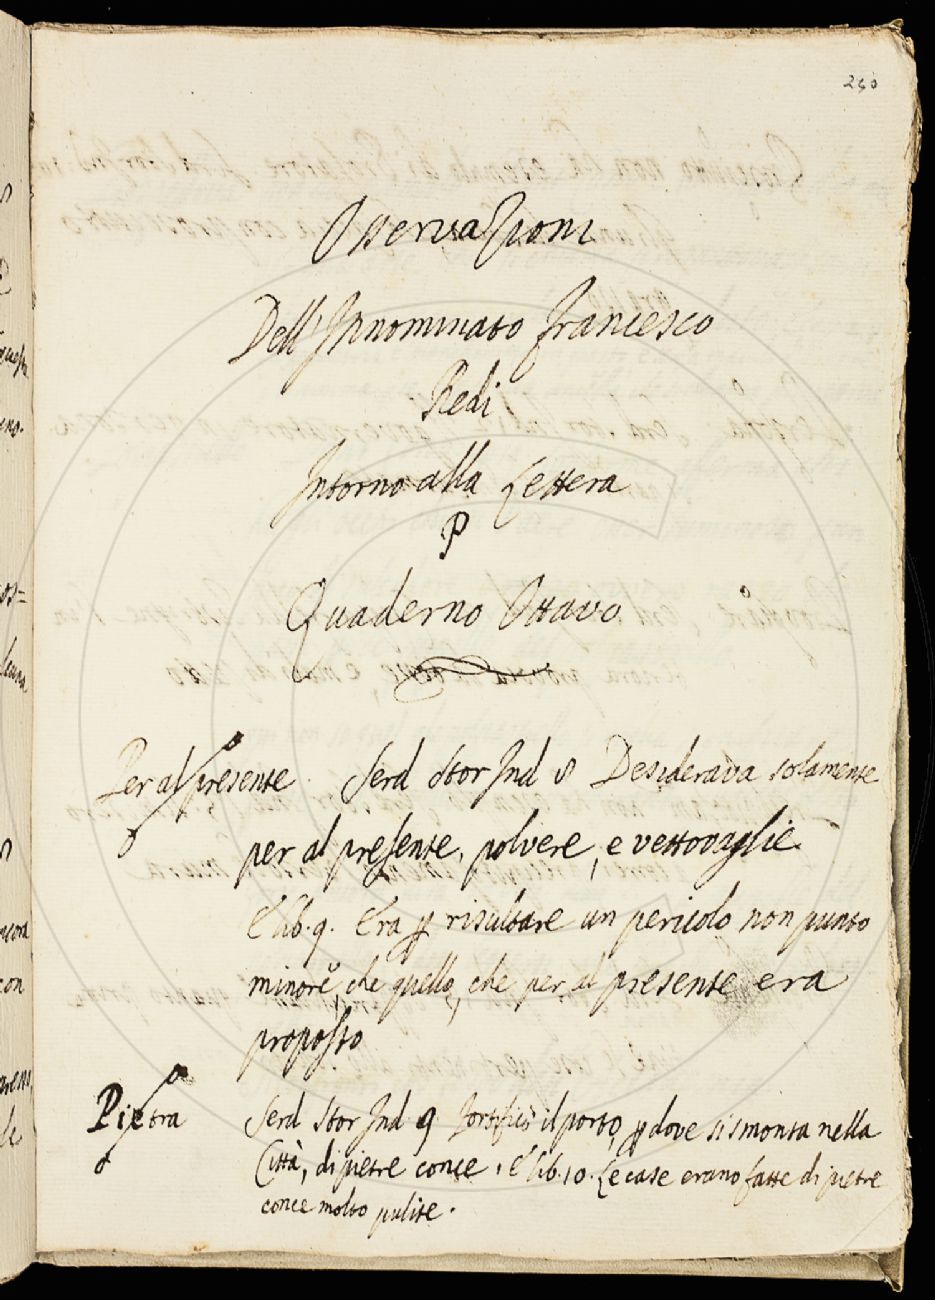 240
Osservazioni
Dell'Innominato Francesco
Redi
Intorno alla Lettera
P
Quaderno Ottavo
Per al presente Serd Stor Ind 8 Desiderava solamente
per al presente, polvere, e vettovaglie.
E lib. 9. Era p risultare un pericolo non punto
minore, che quello, che per al presente era
proposto
Pietra Serd Stor Ind 9 Fortificò il porto, p dove si smonta nella
Città, di pietre conce. E lib. 10. Le case erano fatte di pietre
conce molto pulite.